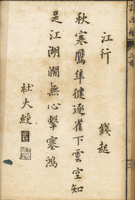 江行
錢起
秋寒鷹隼健逐雀下雲空知
是江湖闊無心擊塞鴻
杜大綬